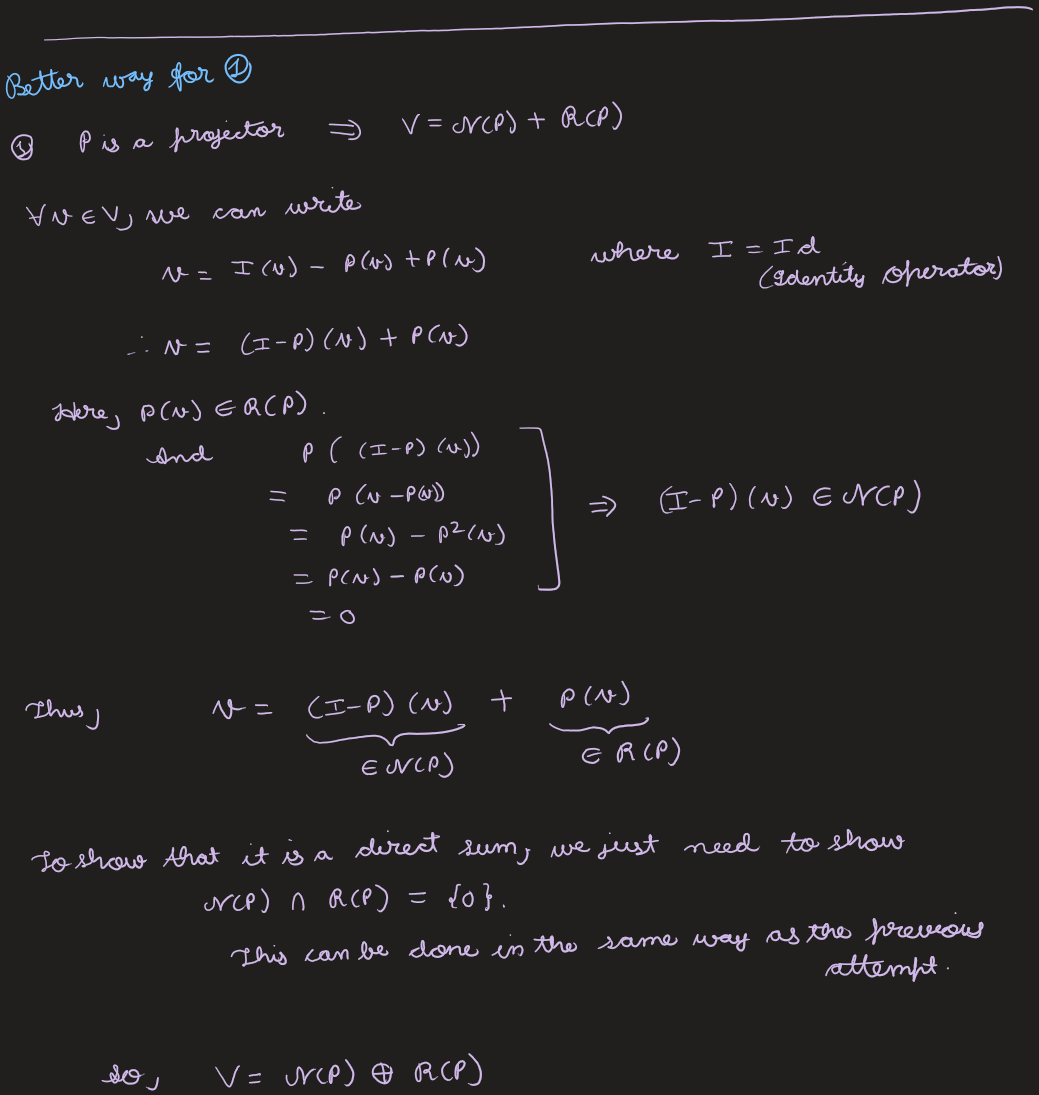 Better way for ①
① P is a projector ⇒ V = N(P) + R(P)
∀ v ∈ V, we can write
v = I(v) - P(v) + P(v) where I = Id
(Identity operator)
∴ v = (I-P)(v) + P(v)
Here, P(v) ∈ R(P).
And P((I-P)(v))
= P(v-P(v))
= P(v) - P²(v) ⇒ (I-P)(v) ∈ N(P)
= P(v) - P(v)
= 0
Thus, v = (I-P)(v) + P(v)
∈ N(P) ∈ R(P)
To show that it is a direct sum, we just need to show
N(P) ∩ R(P) = {0}.
This can be done in the same way as the previous
attempt.
so, V = N(P) ⊕ R(P)